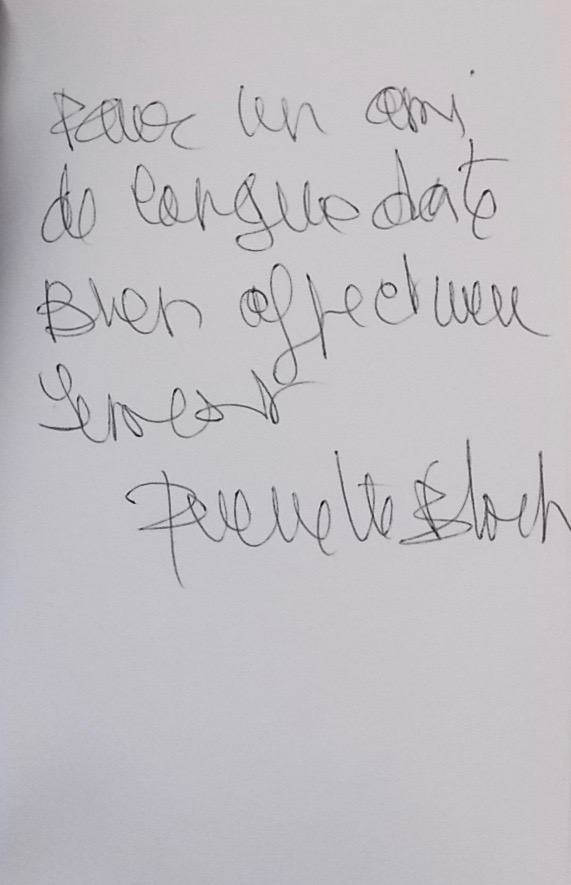 Pour un ami
de longue date
Bien affectueu
sement
Pierrette Bloch